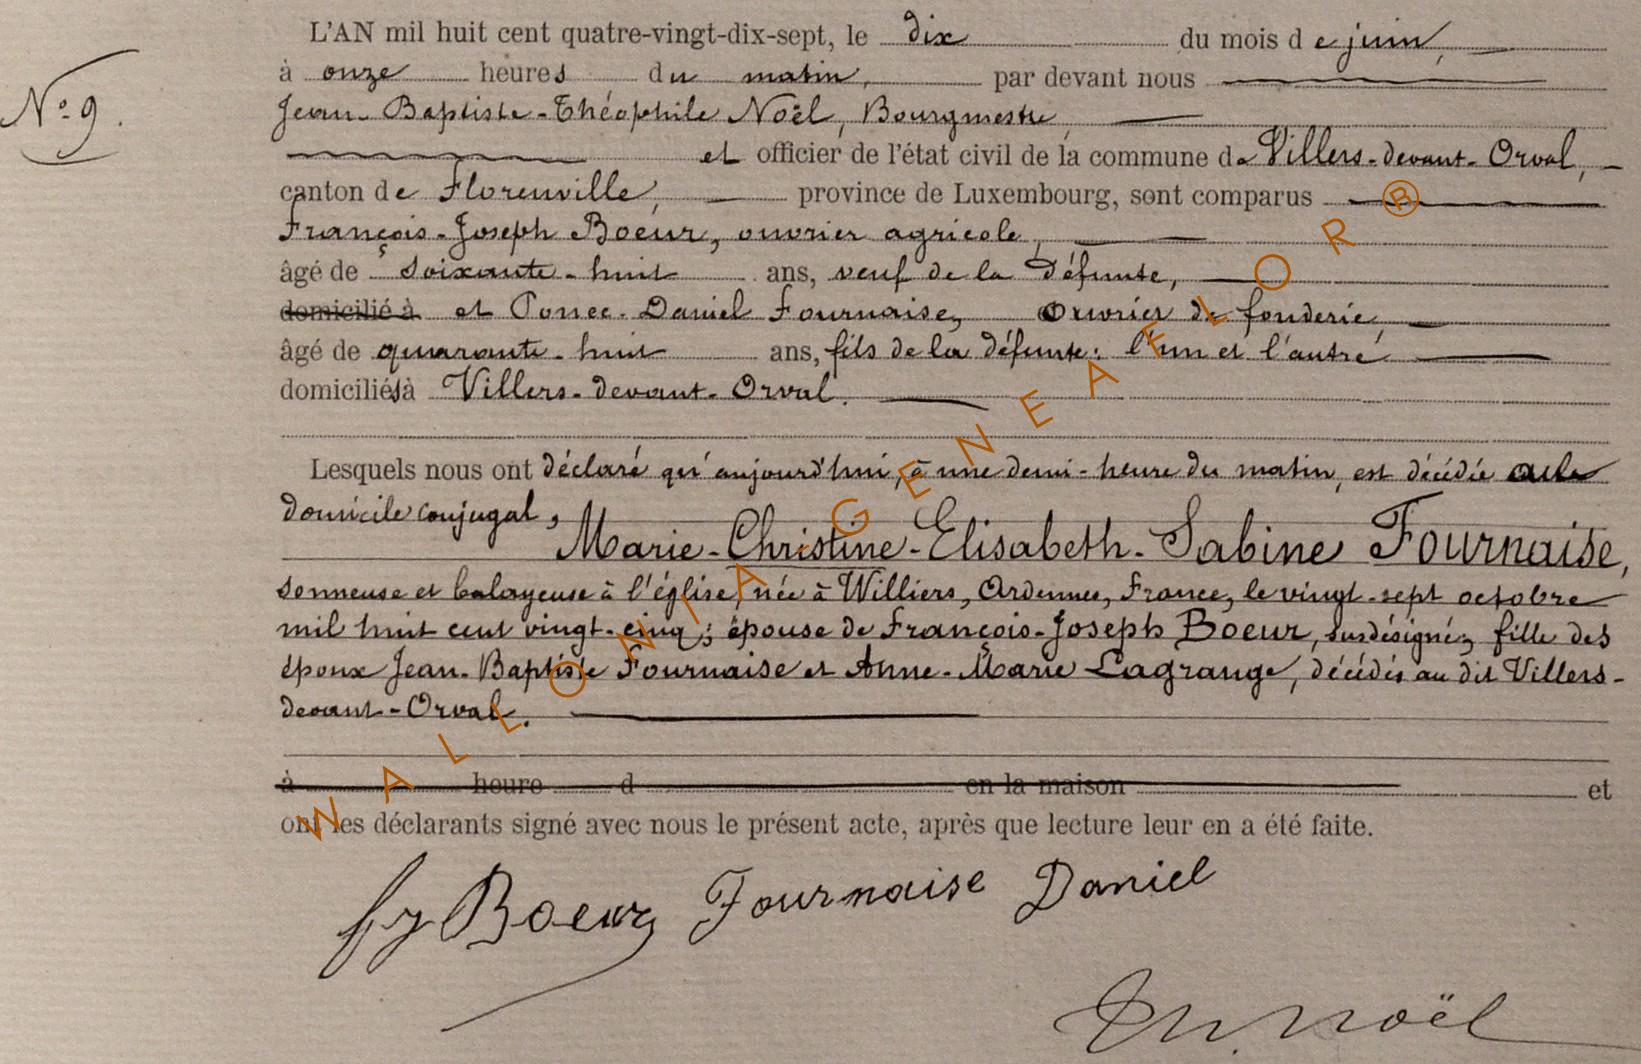 L'AN mil huit cent quatre-vingt-dix-sept, le dix du mois de juin,
à onze heures du matin, par devant nous
N° 9.
Jean-Baptiste-Théophile Noël, Bourgmestre,
et officier de l'état civil de la commune de Villers-devant-Orval,
canton de Florenville, province de Luxembourg, sont comparus
François-Joseph Boeur, ouvrier agricole,
âgé de soixante-huit ans, veuf de la défunte,
domicilié à et Ponce-Daniel Fournaise, Ouvrier de fonderie,
âgé de quarante-huit ans, fils de la défunte: l'un et l'autre
domiciliés à Villers-devant-Orval.
Lesquels nous ont déclaré qu'aujourd'hui, à une demi-heure du matin, est décédée au
domicile conjugal,
Marie-Christine-Elisabeth-Sabine Fournaise,
sonneuse et balayeuse à l'église, née à Williers, Ardennes, France, le vingt-sept octobre
mil huit cent vingt-cinq; épouse de François-Joseph Boeur, susdésigné; fille des
époux Jean-Baptiste Fournaise et Anne-Marie Lagrange, décédés au dit Villers-
devant-Orval.
à heure d en la maison et
ont les déclarants signé avec nous le présent acte, après que lecture leur en a été faite.
fj Boeur Fournaise Daniel
Th. Noël
WALLONIA-GENEAFLOR®